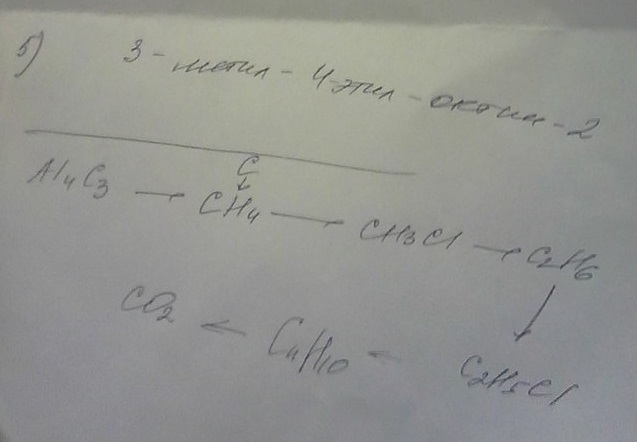 5) 3-метил-4этил-октин-2
C
↓
Al4C3 → CH4 → CH3Cl → C2H6
↓
CO2 ← C4H10 ← C2H5Cl